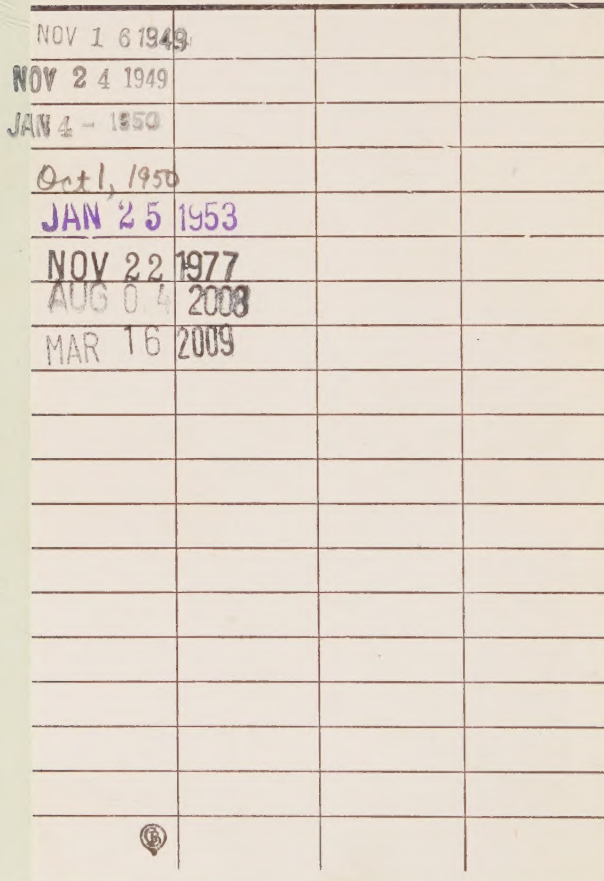 NOV 1 6 1949
NOV 2 4 1949
JAN 4 - 1950
Oct 1, 1950
JAN 25 1953
NOV 22 1977
AUG 04 2008
MAR 16 2009